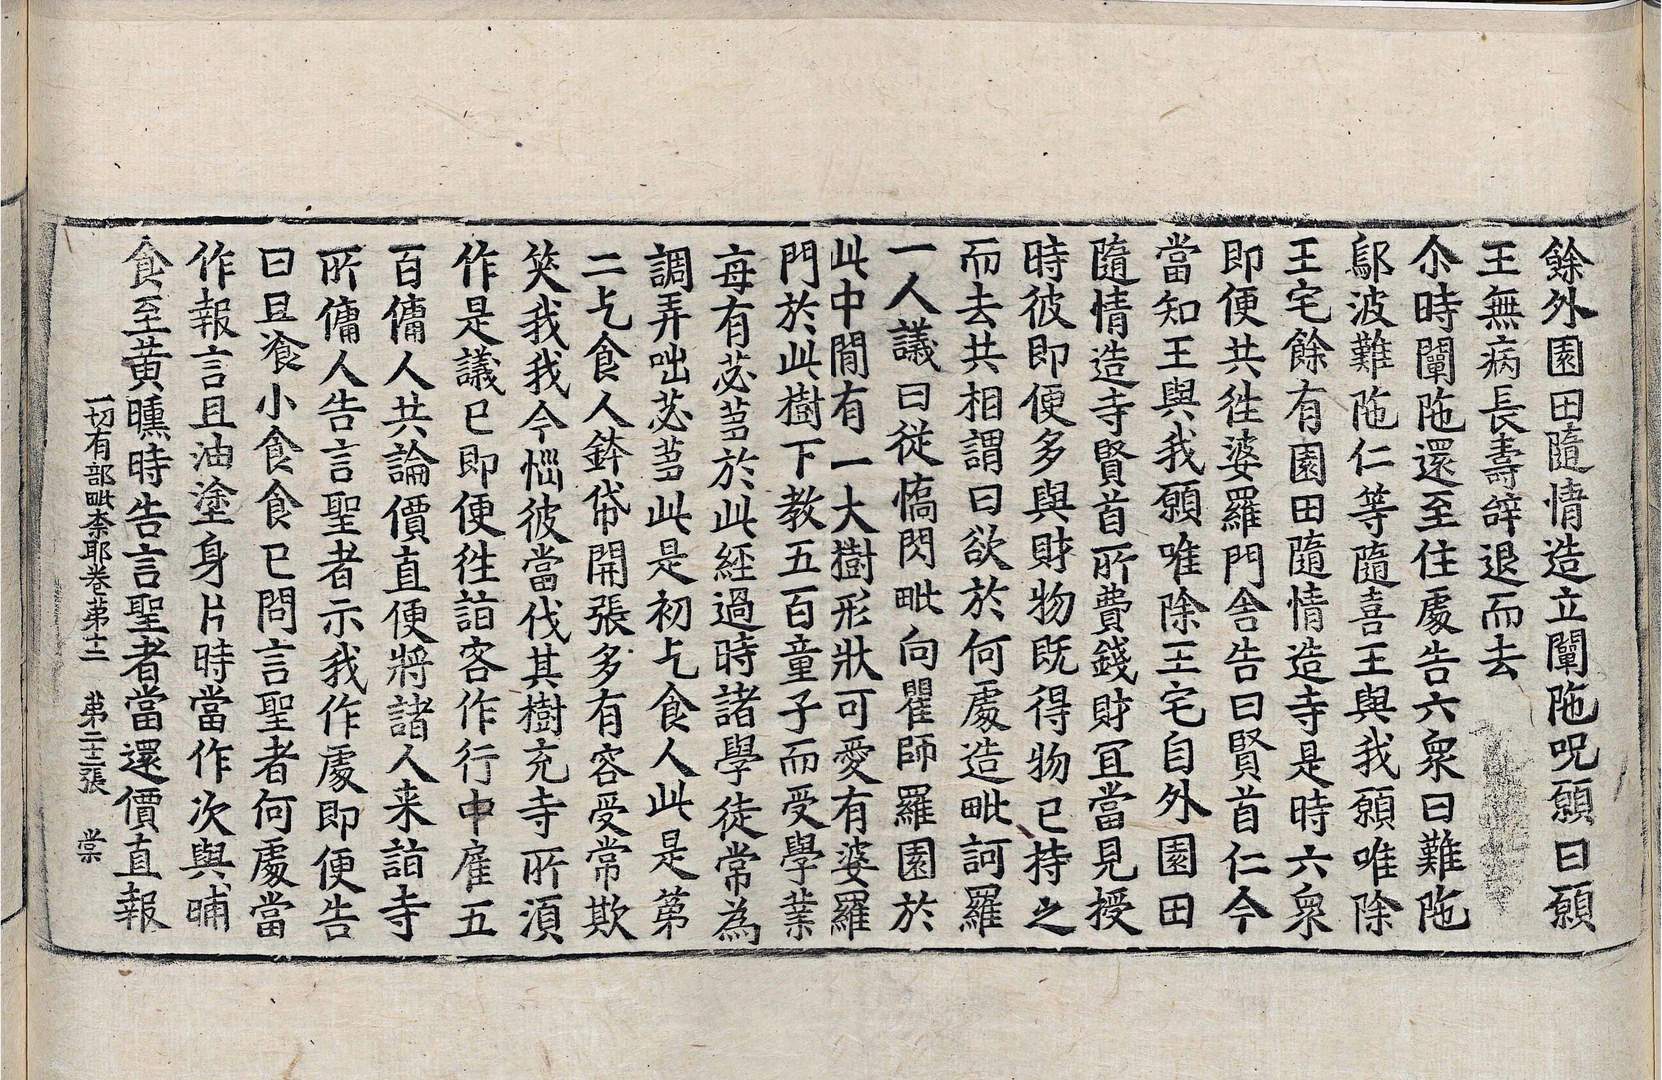 餘外園田隨情造立闡陁呪願曰願
王無病長壽辝退而去
尒時闡陁還至住處告六衆曰難陁
鄔波難陁仁等隨喜王與我願唯除
王宅餘有園田隨情造寺是時六衆
即便共往婆羅門舍告曰賢首仁今
當知王與我願唯除王宅自外園田
隨情造寺賢首所費錢財冝當見授
時彼即便多與財物既得物已持之
而去共相謂曰欲於何處造毗訶羅
一人議曰從憍閃毗向瞿師羅園於
此中閒有一大樹形狀可愛有婆羅
門於此樹下教五百童子而受學業
每有苾芻於此經過時諸學徒常為
調弄咄苾芻此是初乞食人此是第
二乞食人鉢帒開張多有容受常欺
笑我我今惱彼當伐其樹充寺所湏
作是議已即便往詣客作行中雇五
百傭人共論價直便將諸人来詣寺
所傭人告言聖者示我作處即便告
曰且飡小食食已問言聖者何處當
作報言且油塗身片時當作次與晡
食至黄曛時告言聖者當還價直報
一切有部毗柰耶卷第十二 第二十二張 棠